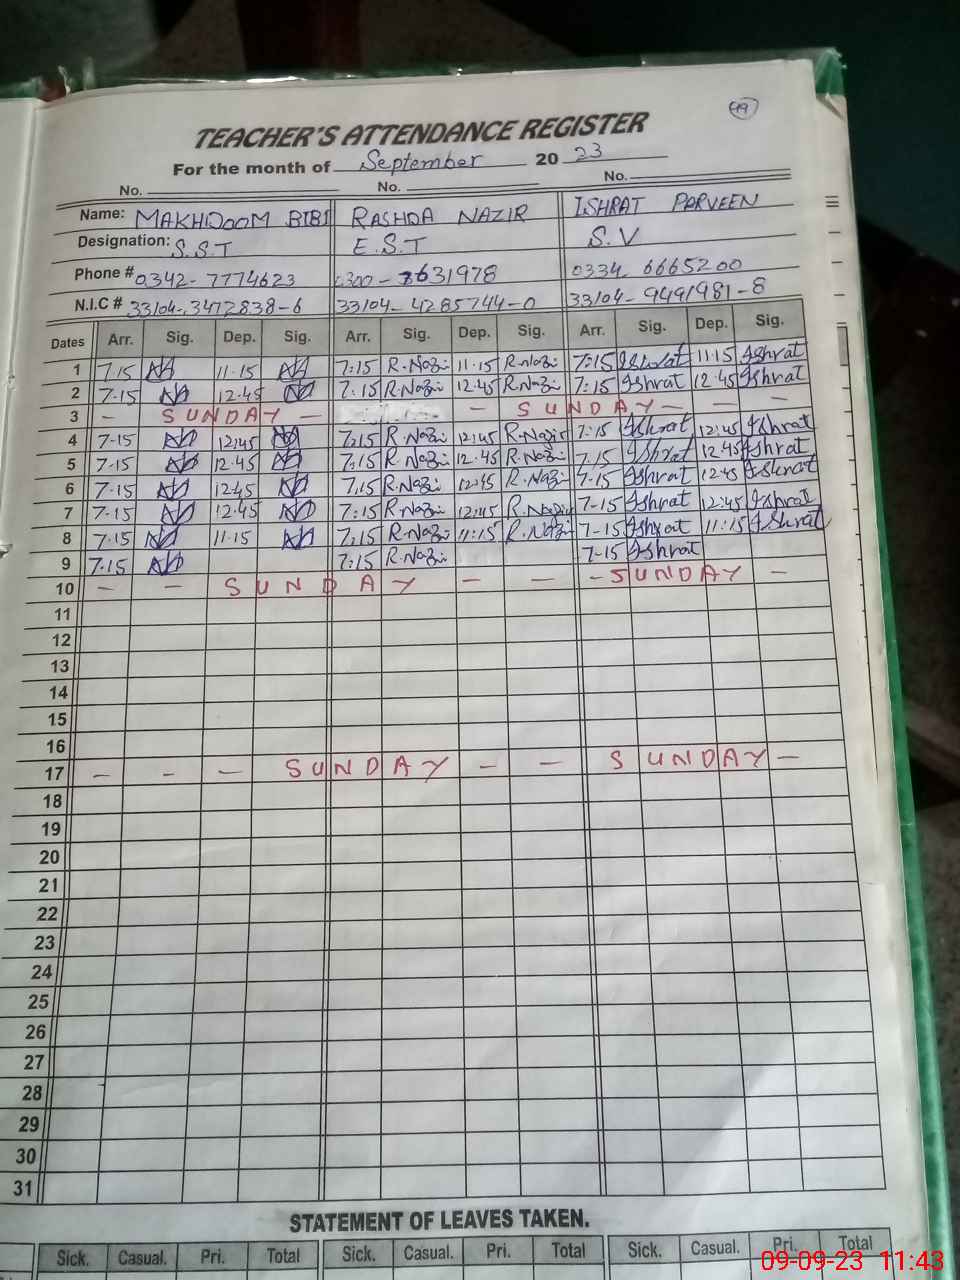 49
TEACHER'S ATTENDANCE REGISTER
For the month of September 20 23
No. No. No.
Name: MAKHDOOM BIBI RASHDA NAZIR ISHRAT PARVEEN
Designation: S.S.T E.S.T S.V
Phone # 0342-7774623 0300-7631978 0334-6665200
N.I.C # 33104-3472838-6 33104-4285744-0 33104-9491981-8
Dates Arr. Sig. Dep. Sig. Arr. Sig. Dep. Sig. Arr. Sig. Dep. Sig.
1 7.15 11.15 7:15 R.Nazir 11.15 R.Nazir 7:15 Ishrat 11.15 Ishrat
2 7-15 12.45 7:15 R.Nazir 12.45 R.Nazir 7:15 Ishrat 12.45 Ishrat
3 - SUNDAY - - SUNDAY - - -
4 7-15 12;45 7:15 R.Nazir 12:45 R.Nazir 7:15 Ishrat 12:45 Ishrat
5 7-15 12.45 7:15 R.Nazir 12.45 R.Nazir 7.15 Ishrat 12.45 Ishrat
6 7-15 12.45 7.15 R.Nazir 12:45 R.Nazir 7-15 Ishrat 12.45 Ishrat
7 7-15 12.45 7:15 R.Nazir 12:45 R.Nazir 7-15 Ishrat 12:45 Ishrat
8 7.15 11.15 7:15 R.Nazir 11:15 R.Nazir 7-15 Ishrat 11:15 Ishrat
9 7.15 7:15 R.Nazir 7-15 Ishrat
10 - - SUNDAY - - - SUNDAY -
11
12
13
14
15
16
17 - - - SUNDAY - - SUNDAY -
18
19
20
21
22
23
24
25
26
27
28
29
30
31
STATEMENT OF LEAVES TAKEN.
Sick. Casual. Pri. Total Sick. Casual. Pri. Total Sick. Casual. Pri. Total
09-09-23 11:43